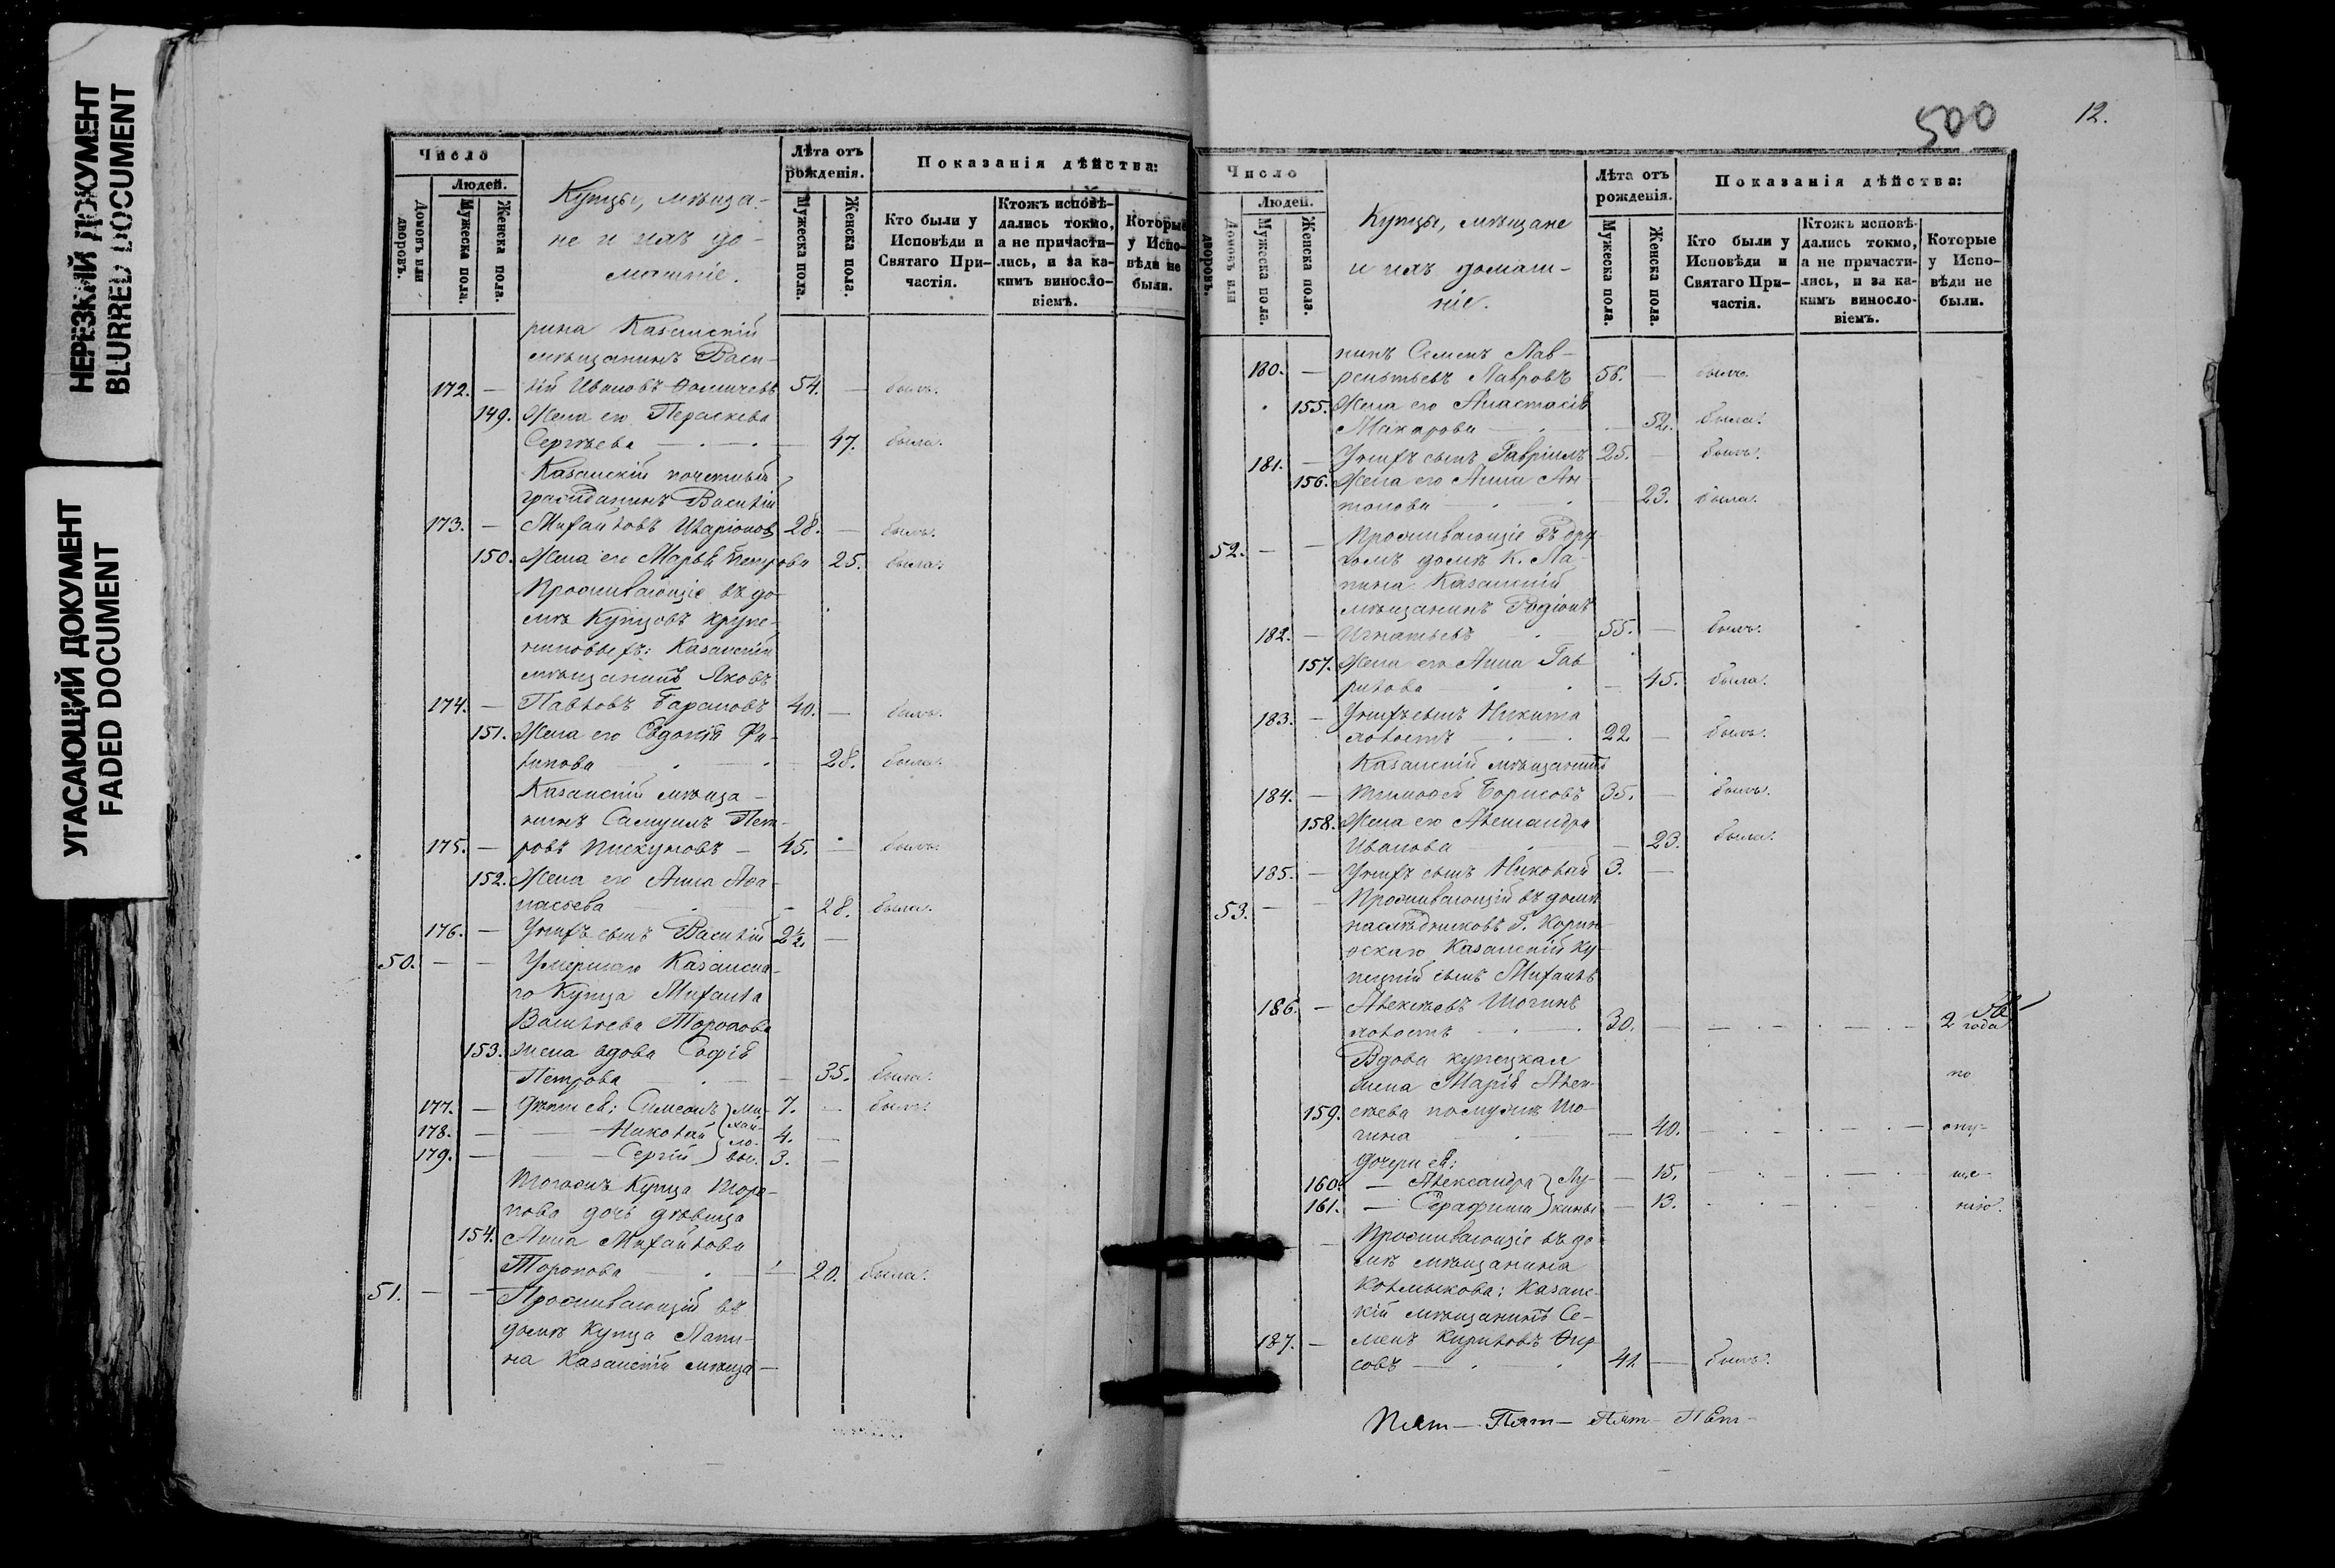 НЕРЕЗКИЙ ДОКУМЕНТ
BLURRED DOCUMENT
УГАСАЮЩИЙ ДОКУМЕНТ
FADED DOCUMENT
Число
Людей.
Домовъ или дворовъ.
Мужеска пола.
Женска пола.
Купцы, мѣща-
не и ихъ до-
машніе.
Лѣта отъ рожденія.
Мужеска пола.
Женска пола.
Показанія дѣйства:
Кто были у Исповѣди и Святаго При-частія.
Ктожъ исповѣ-дались токмо, а не причасти-лись, и за ка-кимъ винosло-віемъ.
Которые у Испо-вѣди не были.
рина Казанскій
мѣщанинъ Васи-
172. — лій Ивановъ 54. — былъ.
149. Жена его Параскева
Сергѣева — 47. была.
Казанскій почетный
гражданинъ Василій
173. — Михайловъ Иларіоновъ 28. — былъ.
150. Жена его Марья Петрова 25. была.
Проживающіе въ до-
мѣ Купцовъ Крупе-
никовыхъ: Казанскій
мѣщанинъ Яковъ
174. — Павловъ Барановъ 40. — былъ.
151. Жена его Евдокія Фи-
липова — 28. была.
Казанскій мѣща-
нинъ Самуилъ Пет-
175. — ровъ Пискуновъ — 45. — былъ.
152. Жена его Анна Афа-
насьева — 28. была.
176. — У нихъ сынъ Василій 2½. —
50. — — Умершаго Казанска-
го Купца Михаила
Васильева Торопова
153. жена вдова Софія
Петрова — 35. была.
177. — Дѣти ея: Симеонъ Ми- 7. — былъ.
178. — — Николай хай- 4. —
179. — — Сергій ло- вы. 3. —
Тогожъ Купца Торо-
пова дочь дѣвица
154. Анна Михайлова
Торопова — 20. была.
51. — — Проживающій въ
домѣ Купца Лапи-
на Казанскій мѣща-
500
12.
Число
Людей.
Домовъ или дворовъ.
Мужеска пола.
Женска пола.
Купцы, мѣщане
и ихъ домаш-
ніе.
Лѣта отъ рожденія.
Мужеска пола.
Женска пола.
Показанія дѣйства:
Кто были у Исповѣди и Святаго При-частія.
Ктожъ исповѣ-дались токмо, а не причасти-лись, и за ка-кимъ винosло-віемъ.
Которые у Испо-вѣди не были.
нинъ Семенъ Лав-
180. — рентьевъ Лавровъ 56. — былъ.
155. Жена его Анастасія
Макарова — 52. была.
181. — У нихъ сынъ Гавріилъ 25. — былъ.
156. Жена его Анна Ан-
тонова — 23. была.
52. — — Проживающіе въ дру-
гомъ домѣ К. Ла-
пина Казанскій
мѣщанинъ Родіонъ
182. — Игнатьевъ 55. — былъ.
157. Жена его Анна Гав-
рилова — 45. была.
183. — У нихъ сынъ Никита
холостъ — 22. — былъ.
Казанскій мѣщанинъ
184. — Тимофей Борисовъ 35. — былъ.
158. Жена его Александра
Иванова — 23. была.
185. — У нихъ сынъ Николай 3. —
53. — — Проживающій въ домѣ
наслѣдниковъ Г. Корин-
фскаго Казанскій ку-
пецкій сынъ Михаилъ
186. — Алексѣевъ Шогинъ
холостъ — 30. — 2 года
Вдова купецкая
жена Марія Алек- по
159. сѣева по мужѣ Шо-
гина — 40. — опу-
Дочери ея:
160. — Александра Лу- — 15. — ще-
161. — Серафима кины — 13. нію.
— Проживающіе въ до-
мѣ мѣщанина
Колмыкова: Казанс-
кій мѣщанинъ Се-
187. — менъ Кириловъ Фир-
совъ — 41. — былъ.